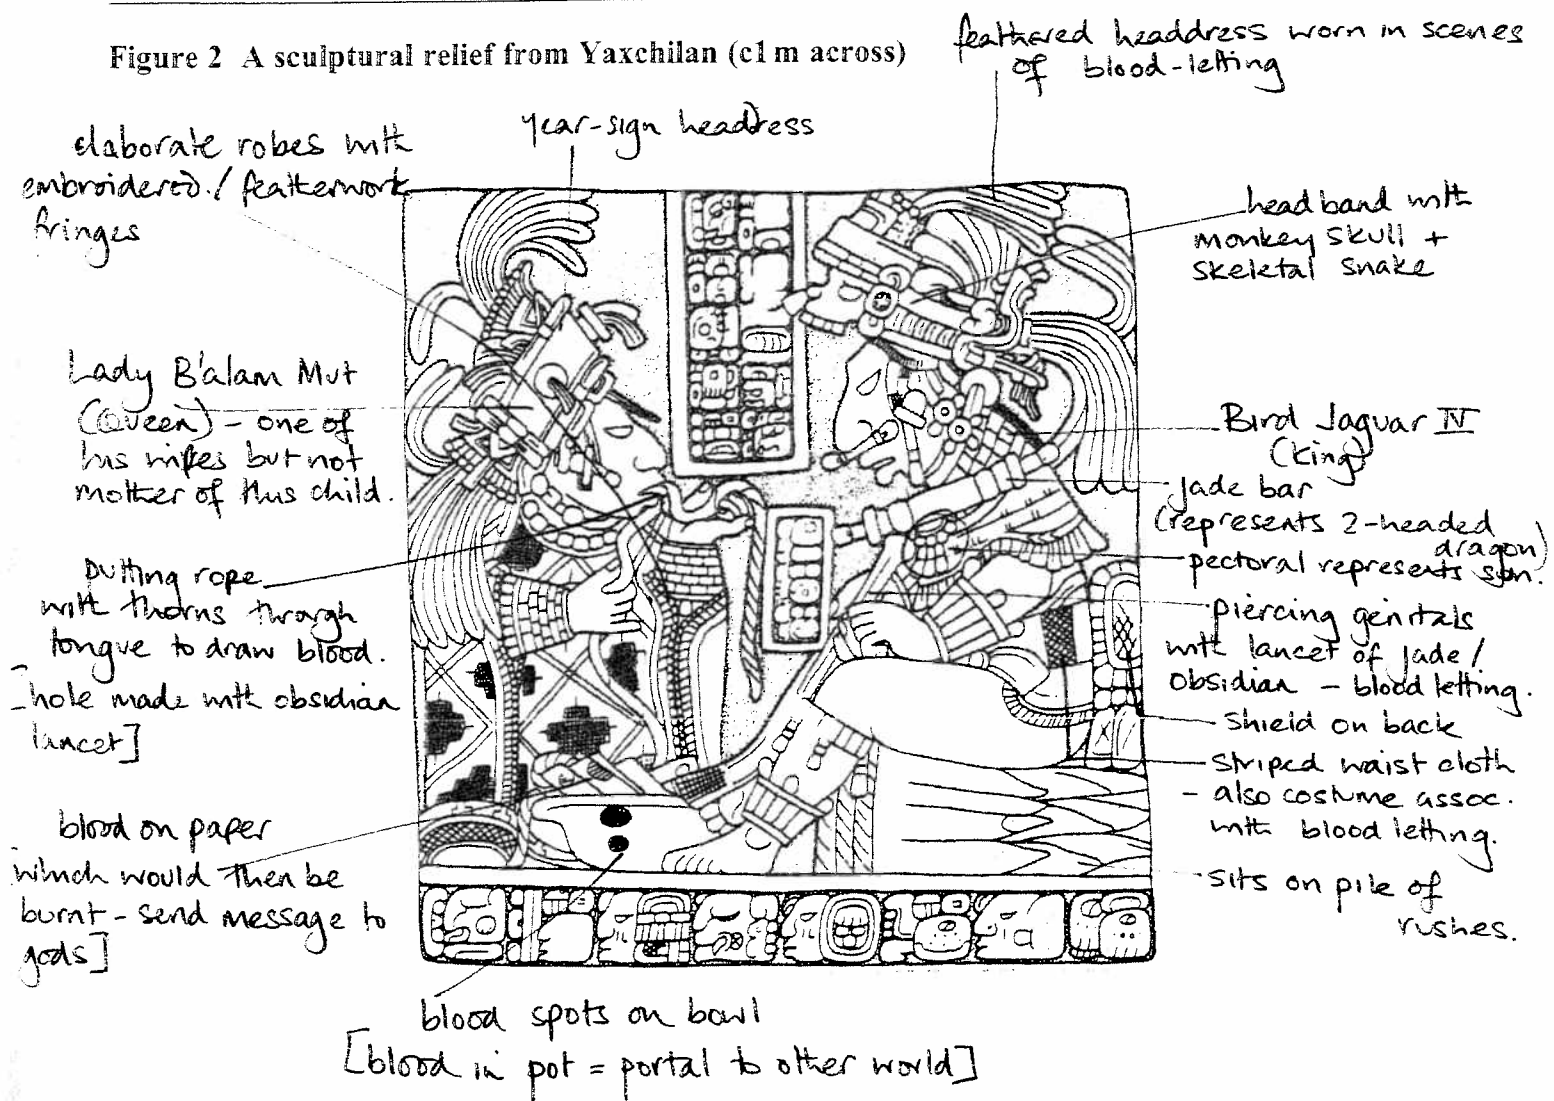 Figure 2 A sculptural relief from Yaxchilan (c1m across)
feathered headdress worn in scenes
of blood-letting
year-sign headdress
elaborate robes with
embroidered / featherwork
fringes
headband with
monkey skull +
skeletal snake
Lady B'alam Mut
(Queen) - one of
his wifes but not
mother of this child.
Bird Jaguar IV
(King)
jade bar
(represents 2-headed
dragon)
pectoral represents sun.
putting rope
with thorns through
tongue to draw blood.
[hole made with obsidian
lancet]
piercing genitals
with lancet of jade /
obsidian - blood letting.
shield on back
striped waist cloth
- also costume assoc.
with blood letting.
blood on paper
[which would then be
burnt - send message to
gods]
sits on pile of
rushes.
blood spots on bowl
[blood in pot = portal to other world]